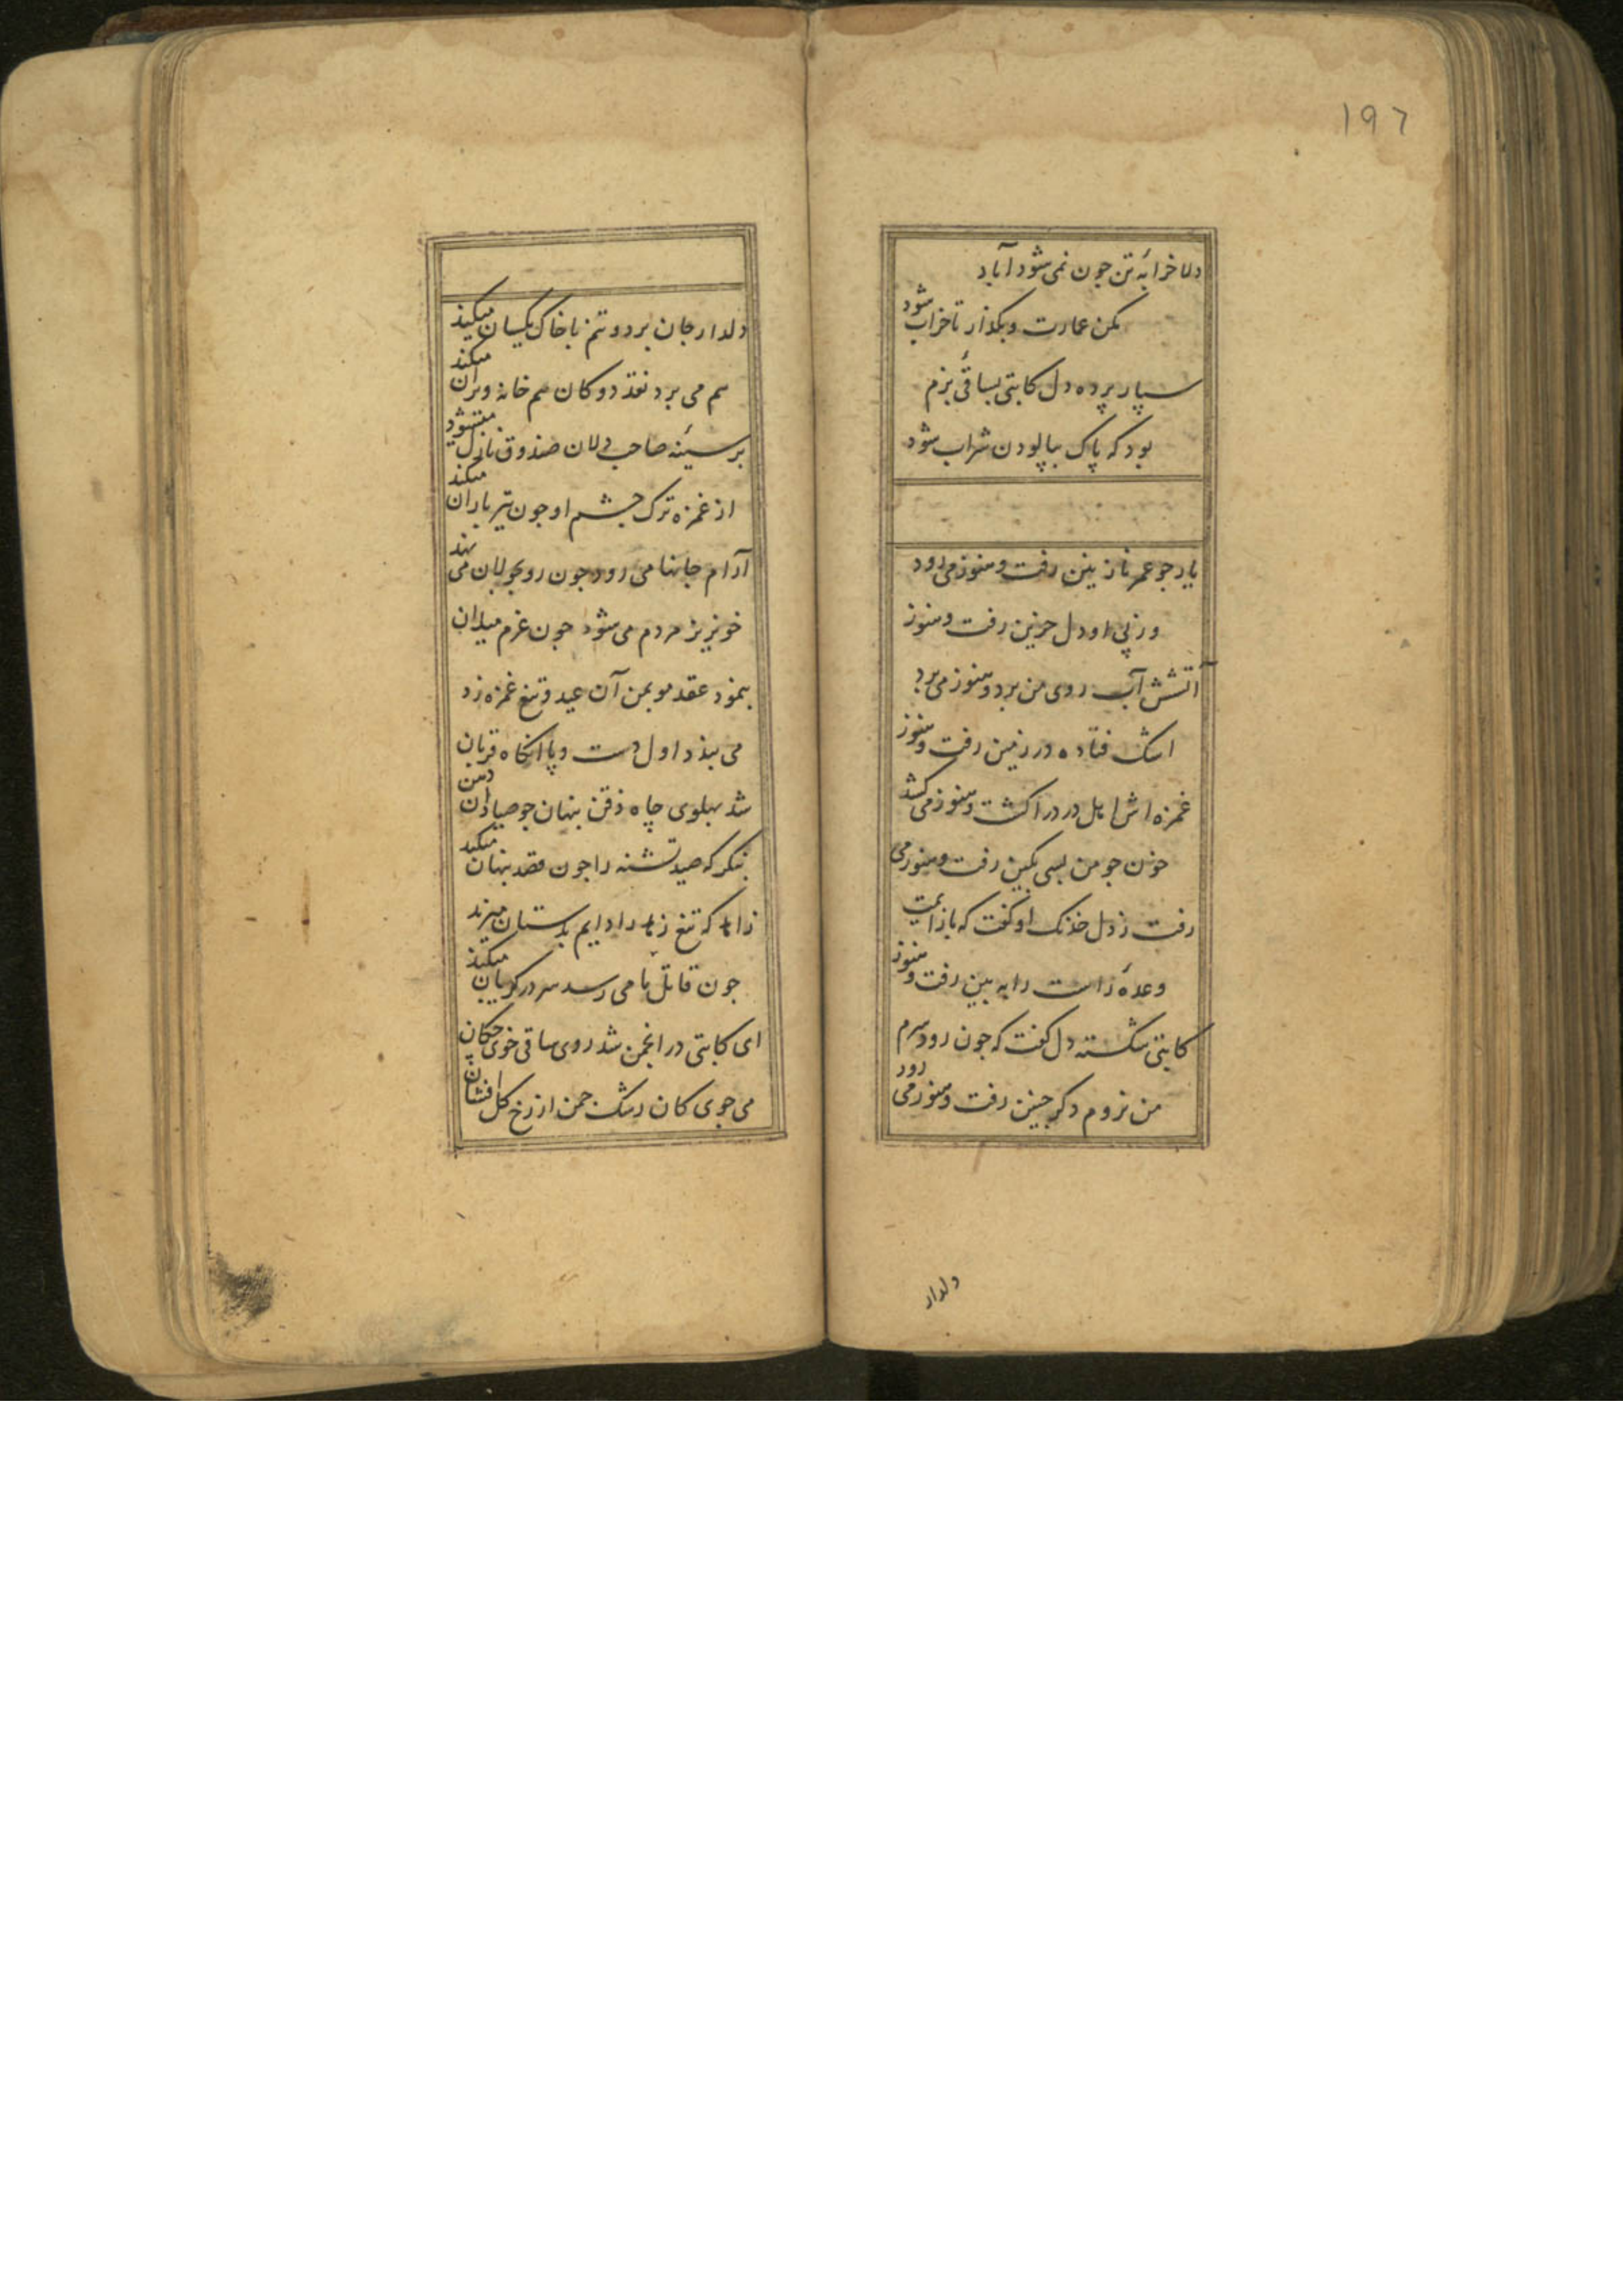 ١٩٦
دلا خرابهٔ تن جون نمی شود آباد
مکن عمارت و بکذار تا خراب شود
سپار پرده دل کاتبی بساقیٔ بزم
بود که پاک بپالودن شراب شود
یار جو عمر نازنین رفت و هنوز می رود
وز پی او دل حزین رفت و هنوز
آتشش آب روی من برد و هنوز می برد
اشک فتاده در زمین رفت و هنوز
غمزه اش اهل درد را کشت و هنوز می کشد
خون جو من بسی بکین رفت و هنوز می
رفت ز دل خدنک او کفت که باز آیمت
وعدهٔ راست را به بین رفت و هنوز
کاتبی شکسته دل کفت که جون رود سرم
من نروم دکر جنین رفت و هنوز می رود
دلدار
دلدار جان برد و تنم با خاک یکسان میکند
هم می برد نقد دوکان هم خانه ویران میکند
بر سینهٔ صاحب دلان صندوق نازل میشود
از غمزه ترک جشم او جون تیر باران میکند
آرام جانها می رود جون رو بجولان می نهد
خونریز مردم می شود جون عزم میدان
بنمود عقد مو بمن آن عید و تیغ غمزه زد
می بندد اول دست و پا انکاه قربان
شد پهلوی چاه ذقن پنهان جو صیادان دهن
بنکر که صید تشنه را جون قصد پنهان میکند
زاهد که تیغ زهد را دایم بدستان میزند
جون قاتل ما می رسد سر در کریبان میکند
ای کاتبی در انجمن شد روی ساقی خوی چکان
می جوی کان رشک جمن از رخ کل افشان